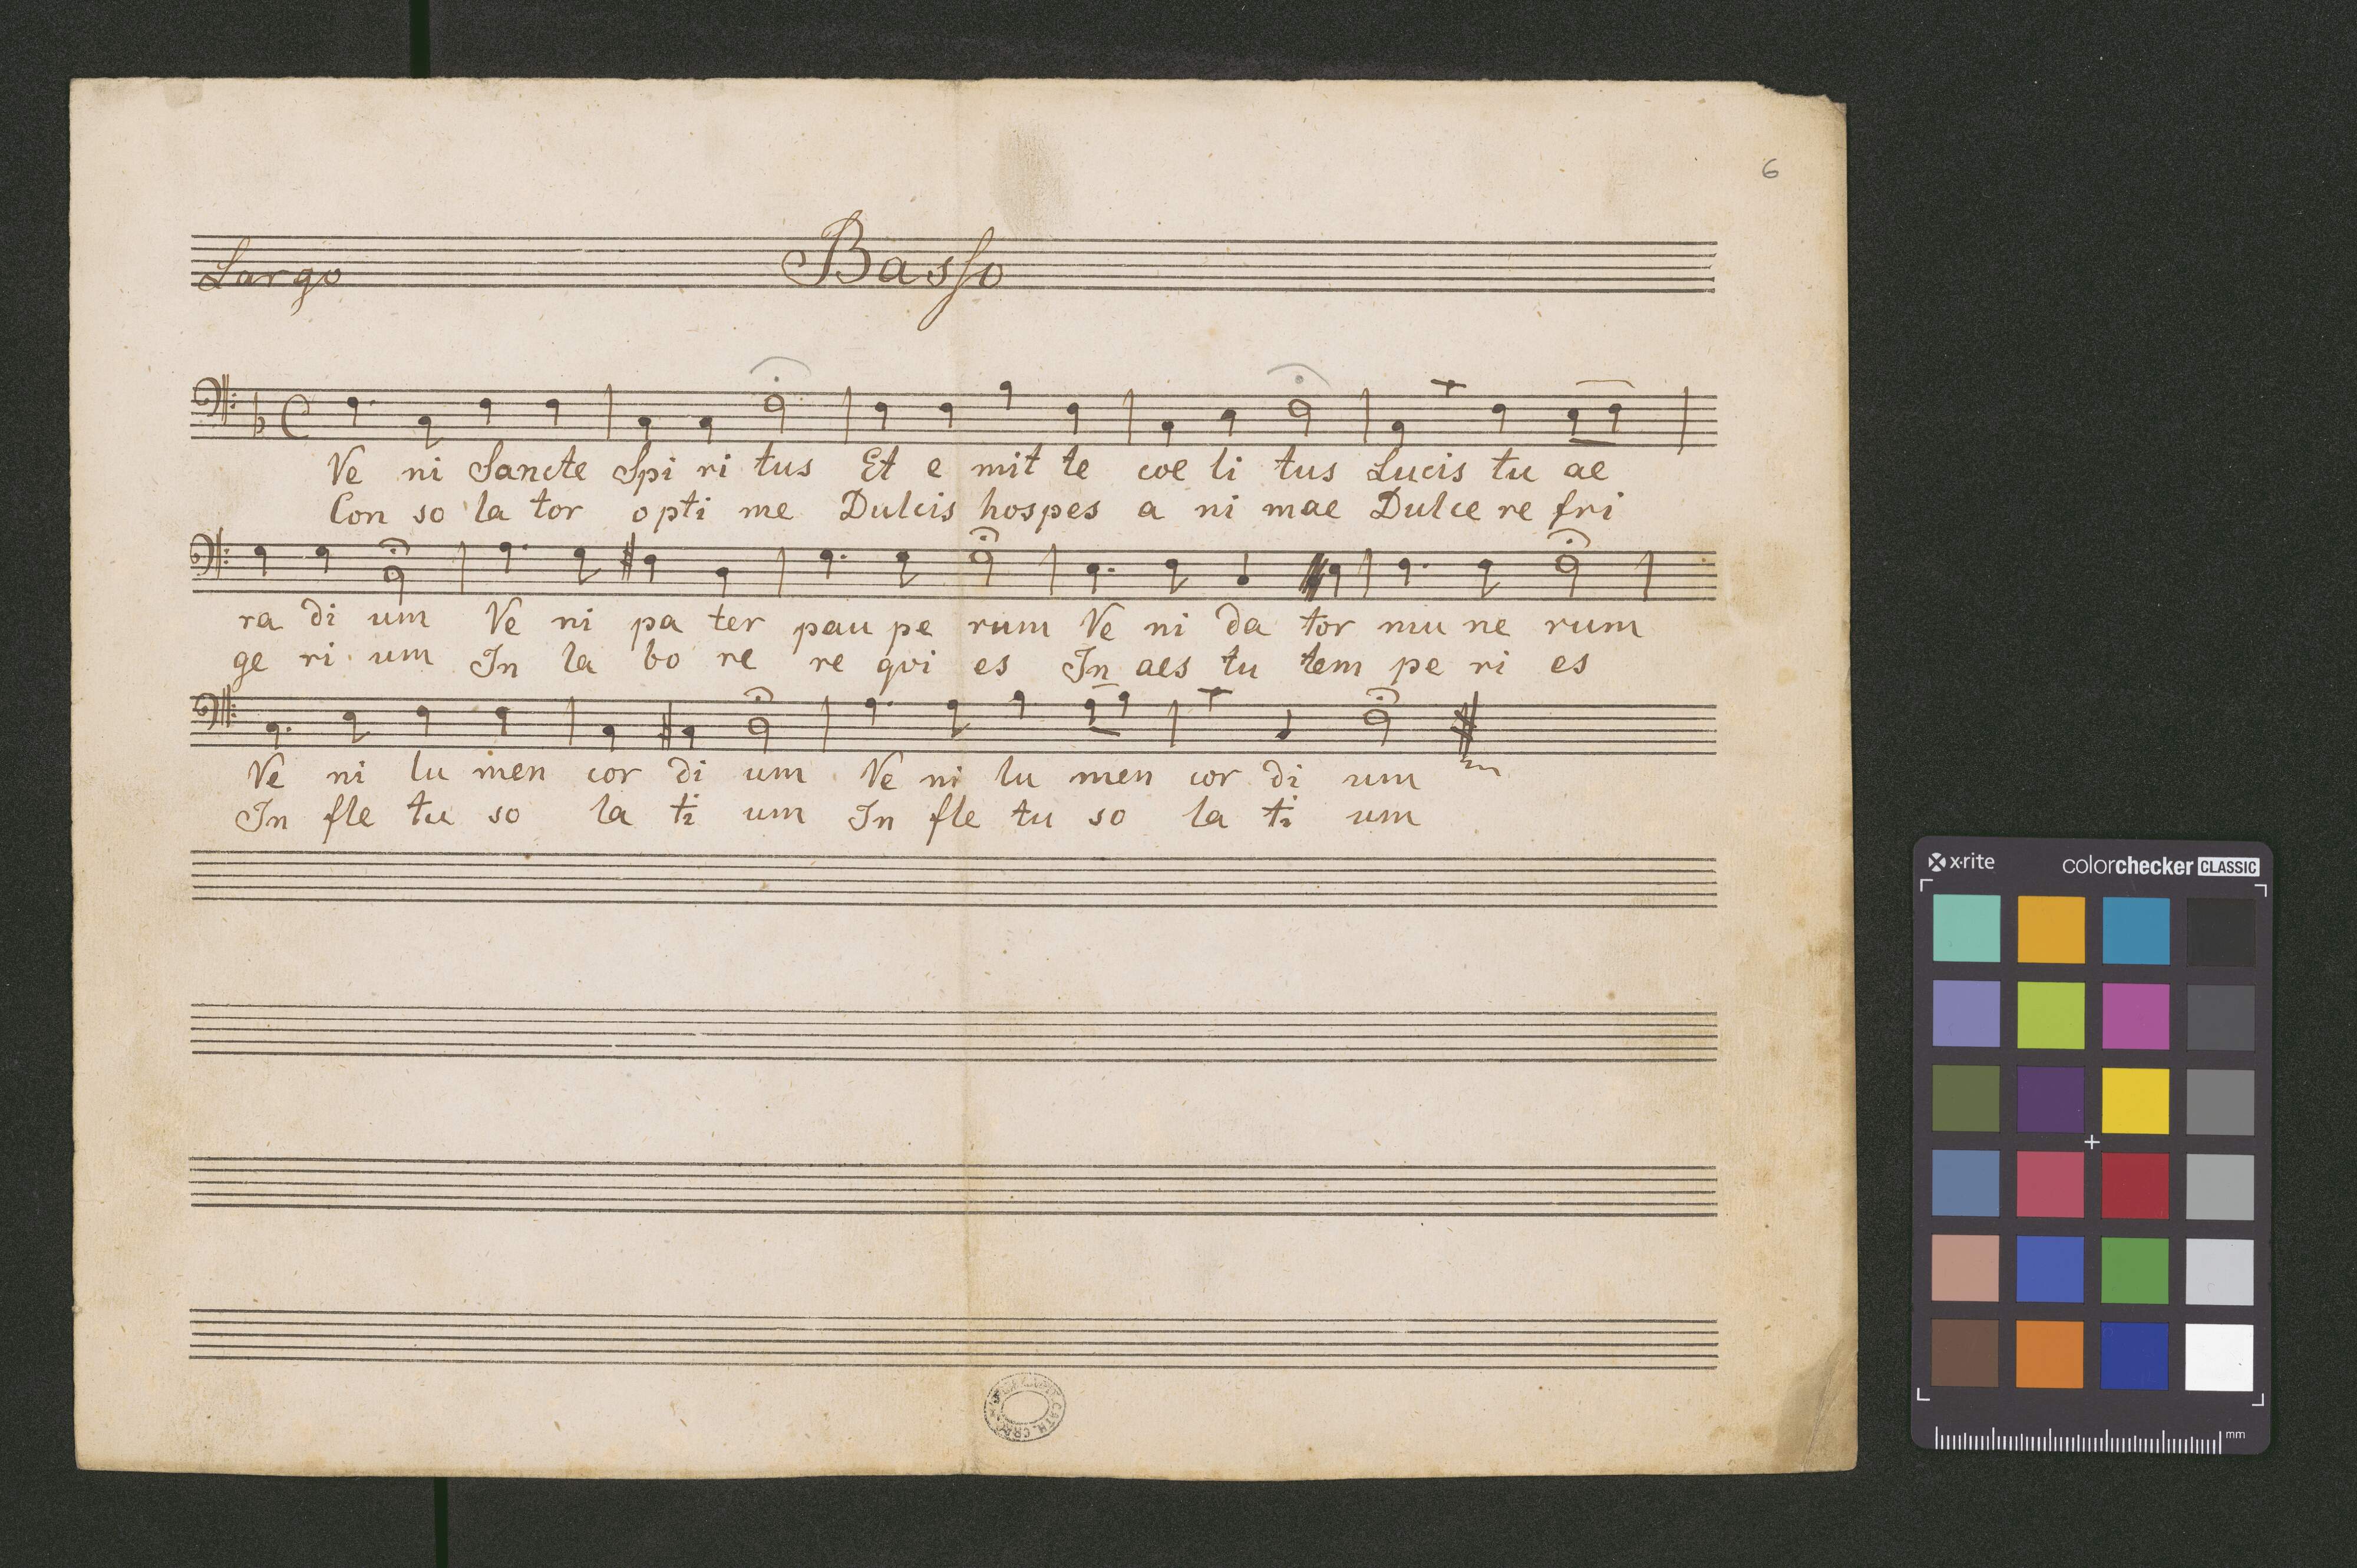 6
Largo Basso
Ve ni Sancte Spi ri tus Et e mit te coe li tus Lucis tu ae
Con so la tor opti me Dulcis hospes a ni mae Dulce re fri
ra di um Ve ni pa ter pau pe rum Ve ni da tor mu ne rum
ge ri um In la bo re re qvi es In aes tu tem pe ri es
Ve ni lu men cor di um Ve ni lu men cor di um
In fle tu so la ti um In fle tu so la ti um
x-rite colorchecker CLASSIC
mm